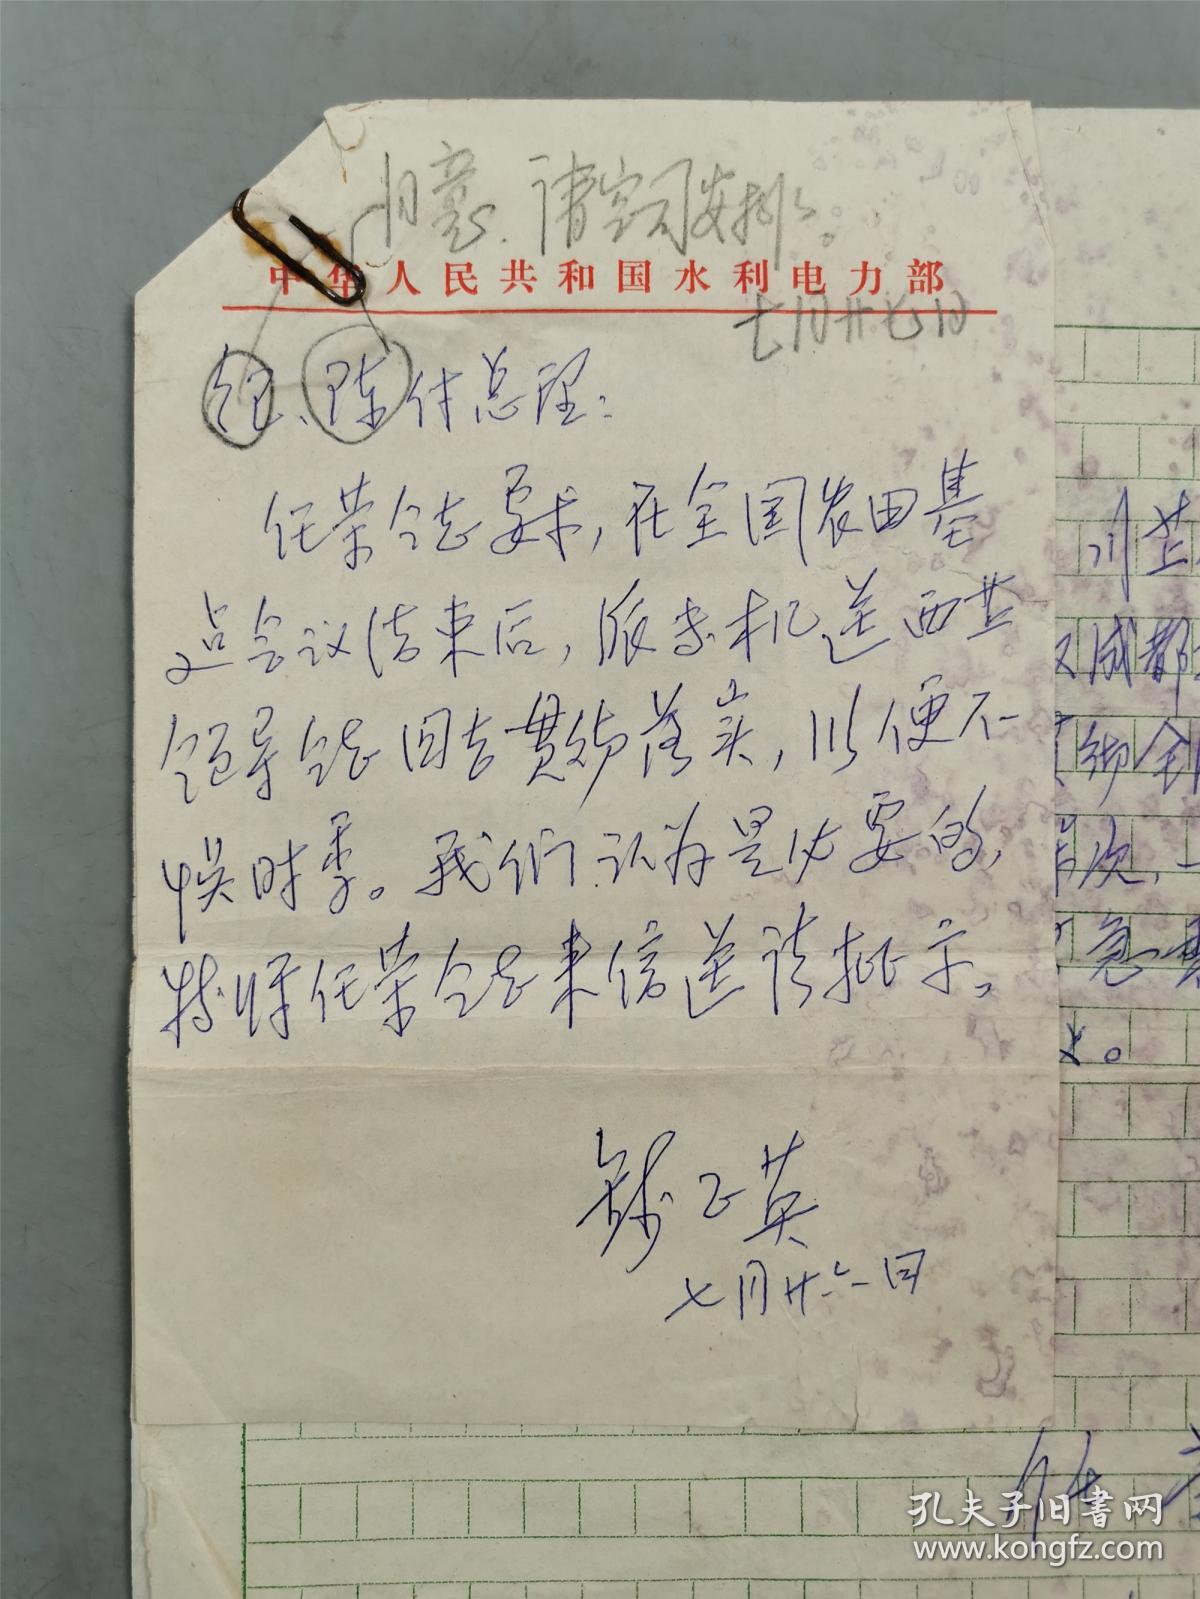 同意，请空司安排。
中华人民共和国水利电力部
七月廿七日
纪、陈付总理：
任荣同志要求，在全国农田基
建会议结束后，派专机送西藏
领导同志回去贯彻落实，以便不
误时季。我们认为是必要的，
特将任荣同志来信送请批示。
钱正英
七月廿六日
川藏
成都
彻
次，一
急
任荣
孔夫子旧书网
www.kongfz.com